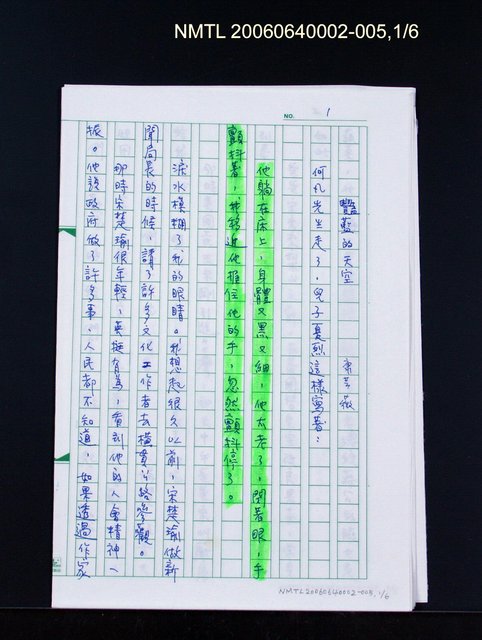 NMTL 20060640002-005,1/6
NO. 1
豔藍的天空
何凡先生走了，兒子夏烈這樣寫著：
他躺在床上，身體又黑又細，他太老了，閉著眼，手
顫抖著，我移近他握住他的手，忽然顫抖停了。
淚水模糊了我的眼睛。我想起很久以前，宋楚瑜做新
聞局長的時候，請了許多文化工作者去橫貫公路參觀。
那時宋楚瑜很年輕，英挺有為，看到他的人會精神一
振。他說政府做了許多事，人民都不知道，如果透過作家
NMTL20060640002-005,1/6